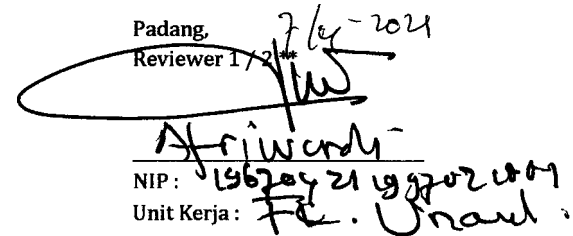 Padang, 7/4-2021
Reviewer 1 / 2 **
Afriwardi
NIP : 196704211997021001
Unit Kerja : FK. Unand.